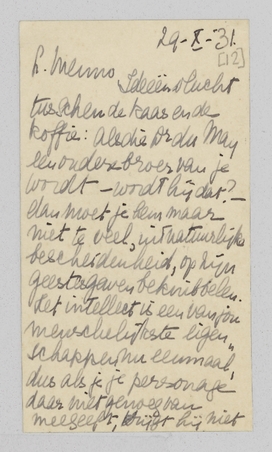 29-X-'31.
[12]
L. Menno
Ideeënvlucht
tusschen de kaas en de
koffie: als die Dr du May
een oudere broer van je
wordt – wordt hij dat? –
dan moet je hem maar
niet te veel, uit natuurlijke
bescheidenheid, op zijn
geestesgaven beknibbelen.
Het intellect is een van jou
menschelijkste eigen„
schappen nu eenmaal,
dus als je je personage
daar niet genoeg van
meegeeft, krijgt hij niet